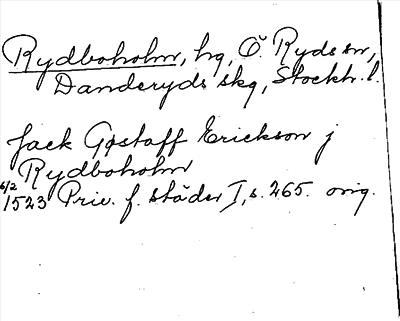 Rydboholm, hg, Ö. Ryds sn,
Danderyds skg, Stockh. l.
Jack Gøstaff Erickson j
Rydboholm
6/2 1523 Priv. f. städer I, s. 265. orig.